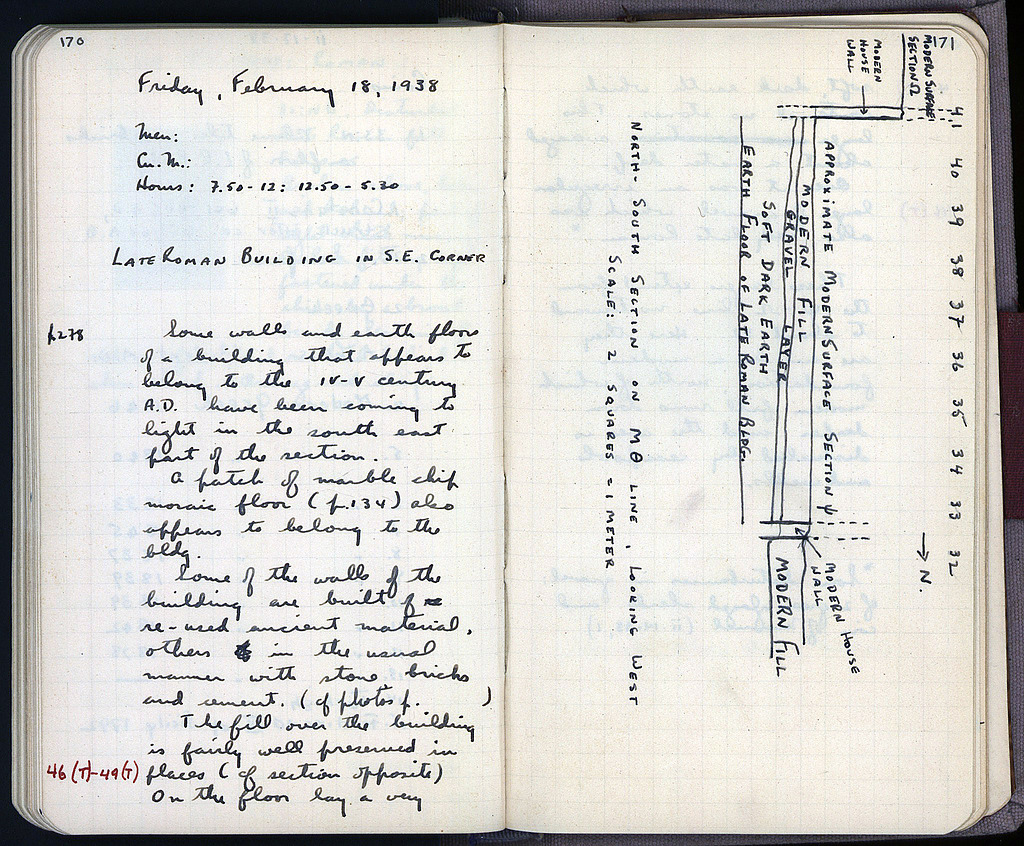 170
Friday, February 18, 1938
Men:
Cu. M.:
Hours: 7.50-12: 12.50-5.30
LATE ROMAN BUILDING IN S.E. CORNER
p.278
Some walls and earth floors
of a building that appears to
belong to the IV-V century
A.D. have been coming to
light in the south east
part of the section.
A patch of marble chip
mosaic floor (p.134) also
appears to belong to the
bldg.
Some of the walls of the
building are built of
re-used ancient material,
others in the usual
manner with stone, bricks
and cement. (cf photos p. )
The fill over the building
is fairly well preserved in
46 (T)-49(T)
places (cf section opposite)
On the floor lay a very
171
MODERN SURFACE
SECTION Ω
MODERN
HOUSE
WALL
41 40 39 38 37 36 35 34 33 32
APPROXIMATE MODERN SURFACE SECTION Ψ
MODERN FILL
GRAVEL LAYER
SOFT DARK EARTH
EARTH FLOOR OF LATE ROMAN BLDG.
MODERN HOUSE
WALL
MODERN FILL
→ N.
NORTH-SOUTH SECTION ON ΜΘ LINE, LOOKING WEST
SCALE: 2 SQUARES = 1 METER